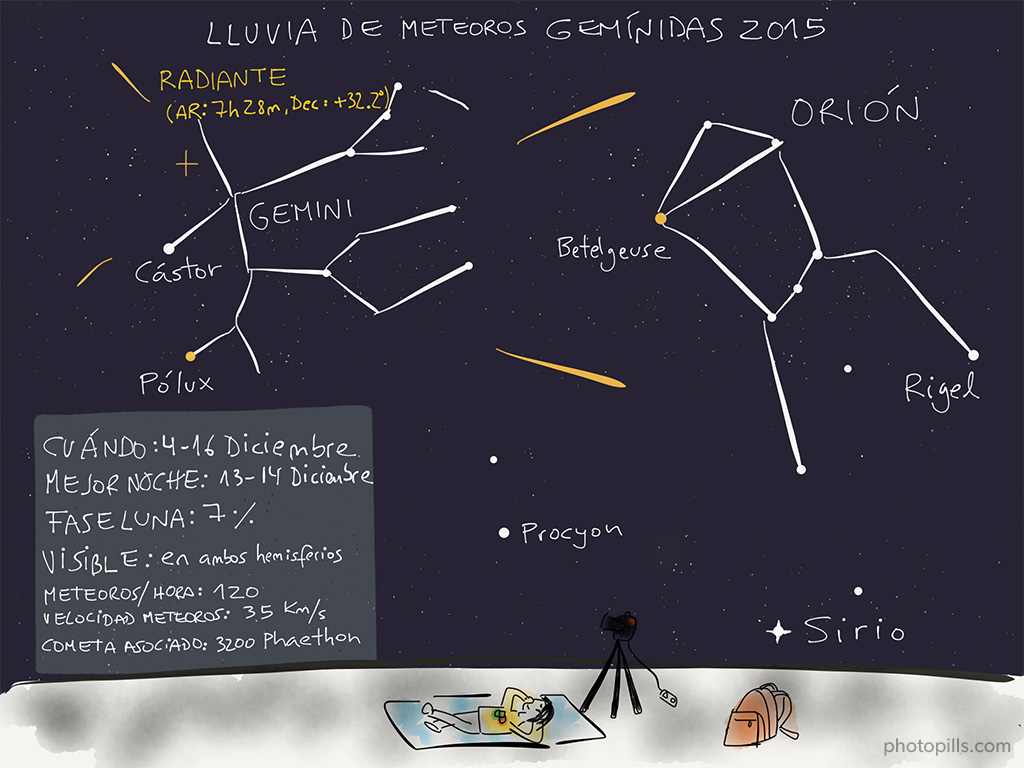 LLUVIA DE METEOROS GEMÍNIDAS 2015
RADIANTE
(AR: 7h 28m, Dec: +32.2°)
ORIÓN
GEMINI
Betelgeuse
Cástor
Pólux
Rigel
CUÁNDO: 4-16 Diciembre
MEJOR NOCHE: 13-14 Diciembre
FASE LUNA: 7%
VISIBLE: en ambos hemisferios
METEOROS/HORA: 120
VELOCIDAD METEOROS: 35 Km/s
COMETA ASOCIADO: 3200 Phaethon
Procyon
Sirio
photopills.com